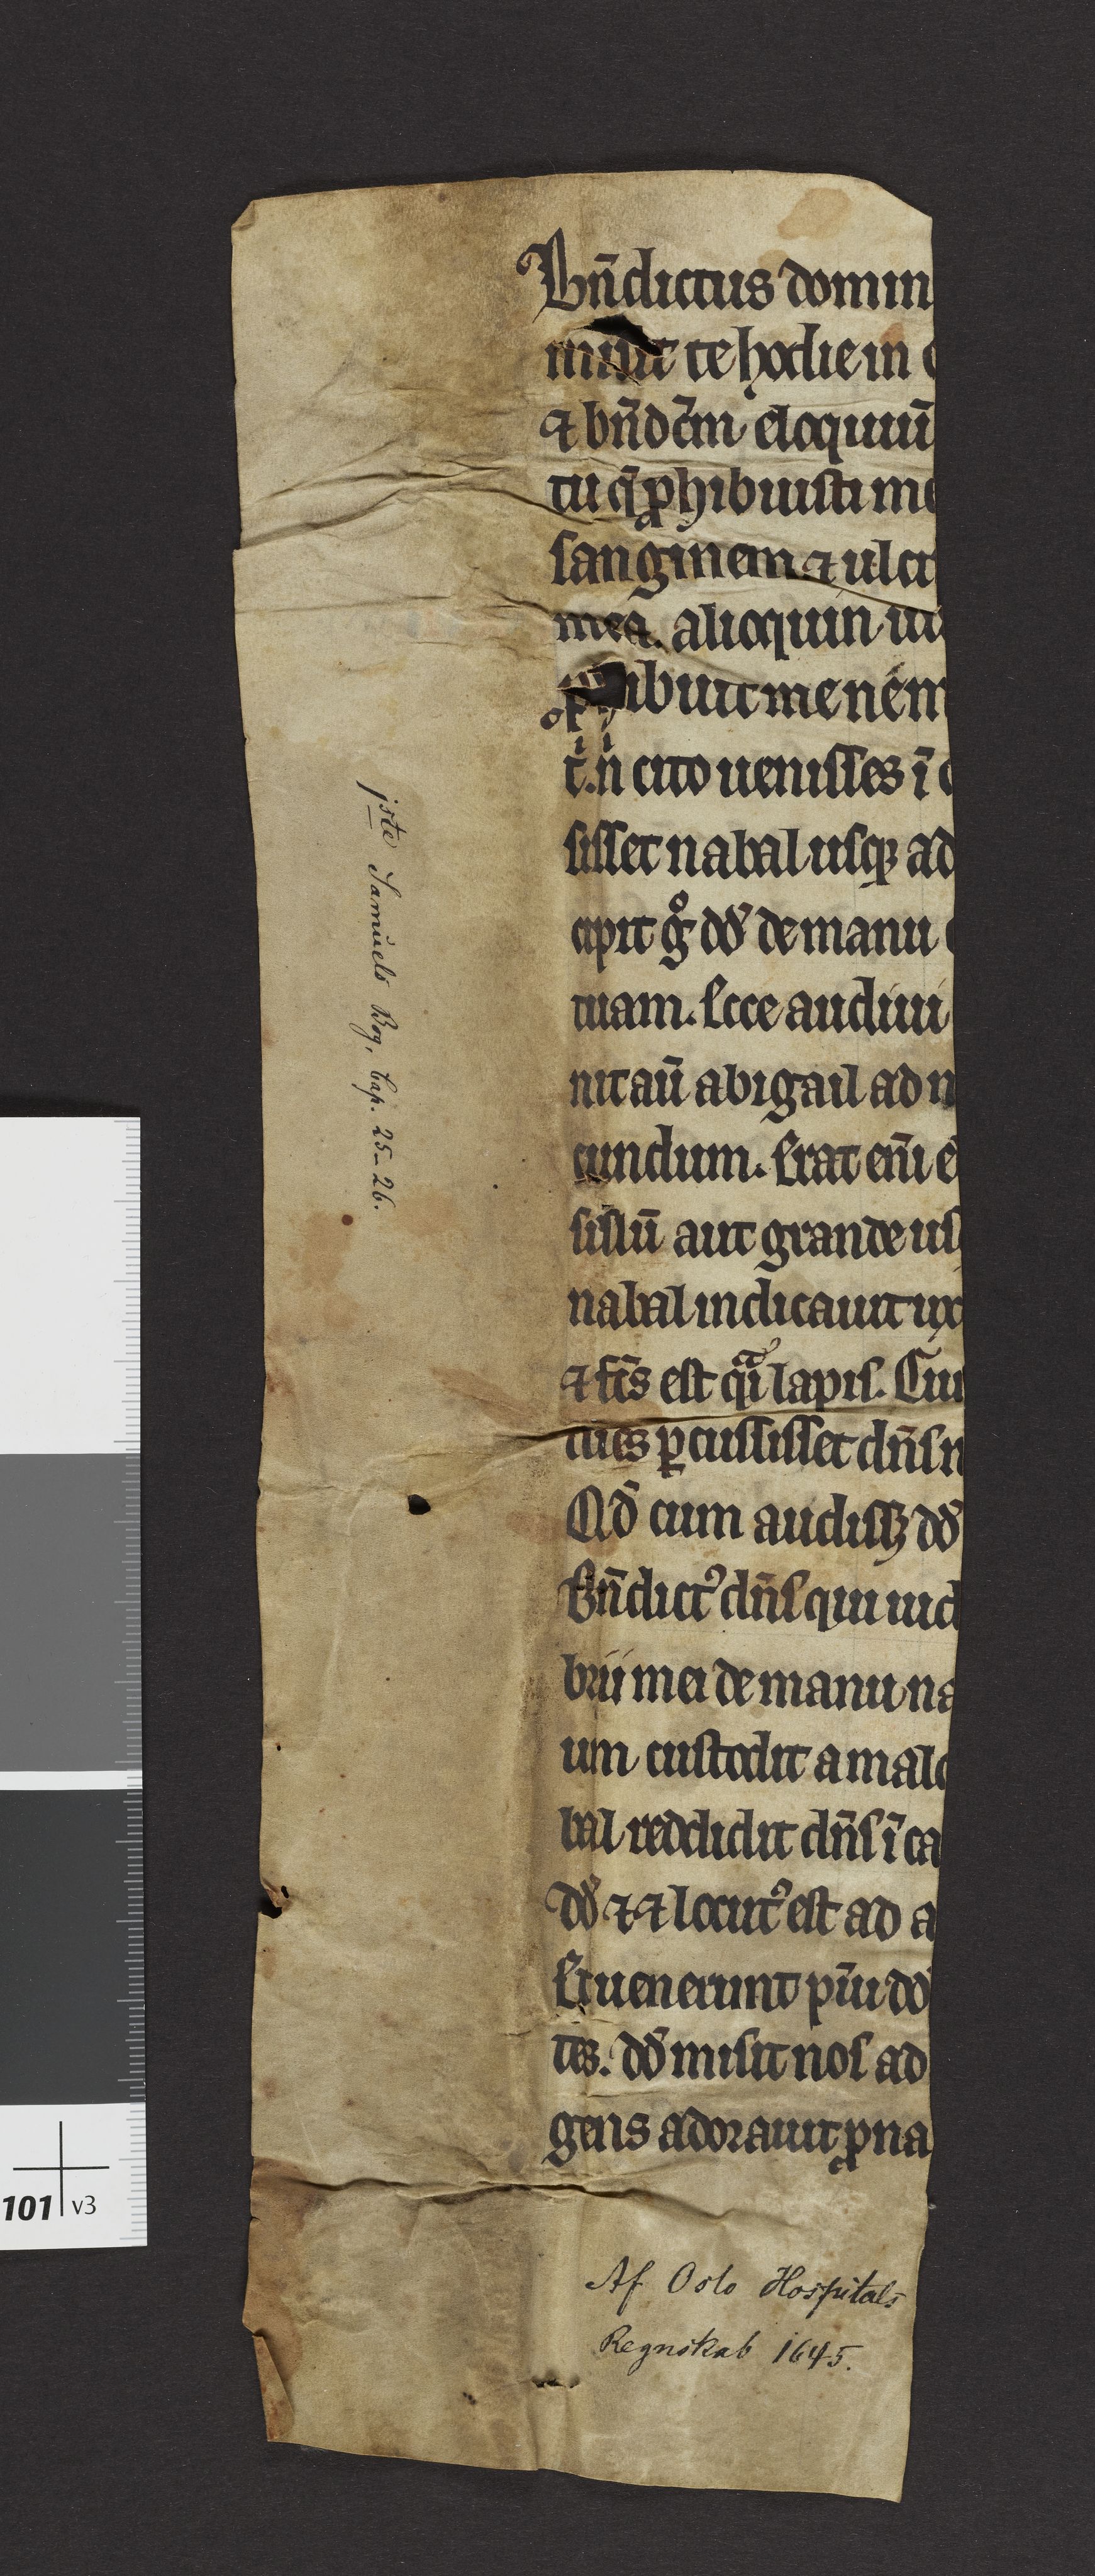 Bn̄dictus domin
miſit te hodie in
⁊ bn̄dc̄m eloquiū
tu q̄ ꝓhibuiſti me
sanginem ⁊ ulci
mea. alioquin ui
ꝓhibuit me ne m
t͛. ni cito ueniſſes ī o
siſſet nabal uſqꝫ ad
cipit gͦ dd̄ de manu
tuam. Ecce audiui
nit aū abigail ad n
cundum. Erat eni e
siſlū aut grande uſ
nabal indicauit ux
⁊ fc̄s est qͣi lapis. Cū
dies ꝑcuſſiſſet dn̄s n
Qd̄ cum audiſſꝫ dd̄
Bn̄dictꝰ dn̄s qui iud
brii mei de manu na
um cuſtodit a malo
bal reddidit dn̄s ī ca
dd̄ ⁊ ⁊ locutꝰ est ad a
Et uenerunt pu̅i dd̄
tes. dd̄ misit nos ad
gens adorauit ꝓna
jste Samuels Bog, Cap. 25-26.
Af Oslo Hospitals
Regnskab 1645.
101 v3